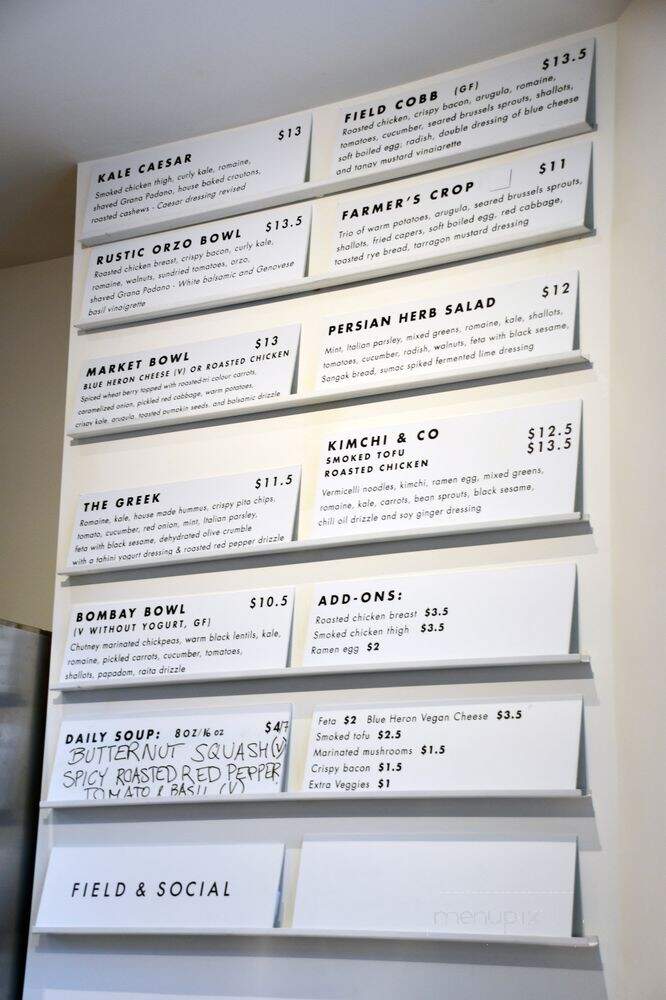 KALE CAESAR $13
Smoked chicken thigh, curly kale, romaine,
shaved Grana Padano, house baked croutons,
roasted cashews - Caesar dressing revised
FIELD COBB (GF) $13.5
Roasted chicken, crispy bacon, arugula, romaine,
tomatoes, cucumber, seared brussels sprouts, shallots,
soft boiled egg, radish, double dressing of blue cheese
and tangy mustard vinaigrette
RUSTIC ORZO BOWL $13.5
Roasted chicken breast, crispy bacon, curly kale,
romaine, walnuts, sundried tomatoes, orzo,
shaved Grana Padano - White balsamic and Genovese
basil vinaigrette
FARMER'S CROP $11
Trio of warm potatoes, arugula, seared brussels sprouts,
shallots, fried capers, soft boiled egg, red cabbage,
toasted rye bread, tarragon mustard dressing
MARKET BOWL $13
BLUE HERON CHEESE (V) OR ROASTED CHICKEN
Spiced wheat berry topped with roasted tri colour carrots,
caramelized onion, pickled red cabbage, warm potatoes,
crispy kale, arugula, toasted pumpkin seeds, and balsamic drizzle
PERSIAN HERB SALAD $12
Mint, Italian parsley, mixed greens, romaine, kale, shallots,
tomatoes, cucumber, radish, walnuts, feta with black sesame,
Sangak bread, sumac spiked fermented lime dressing
THE GREEK $11.5
Romaine, kale, house made hummus, crispy pita chips,
tomato, cucumber, red onion, mint, Italian parsley,
feta with black sesame, dehydrated olive crumble
with a tahini yogurt dressing & roasted red pepper drizzle
KIMCHI & CO
SMOKED TOFU $12.5
ROASTED CHICKEN $13.5
Vermicelli noodles, kimchi, ramen egg, mixed greens,
romaine, kale, carrots, bean sprouts, black sesame,
chili oil drizzle and soy ginger dressing
BOMBAY BOWL $10.5
(V WITHOUT YOGURT, GF)
Chutney marinated chickpeas, warm black lentils, kale,
romaine, pickled carrots, cucumber, tomatoes,
shallots, papadom, raita drizzle
ADD-ONS:
Roasted chicken breast $3.5
Smoked chicken thigh $3.5
Ramen egg $2
DAILY SOUP: 8 OZ/16 OZ $4/7
BUTTERNUT SQUASH (V)
SPICY ROASTED RED PEPPER
TOMATO & BASIL (V)
Feta $2 Blue Heron Vegan Cheese $3.5
Smoked tofu $2.5
Marinated mushrooms $1.5
Crispy bacon $1.5
Extra Veggies $1
FIELD & SOCIAL
menupix